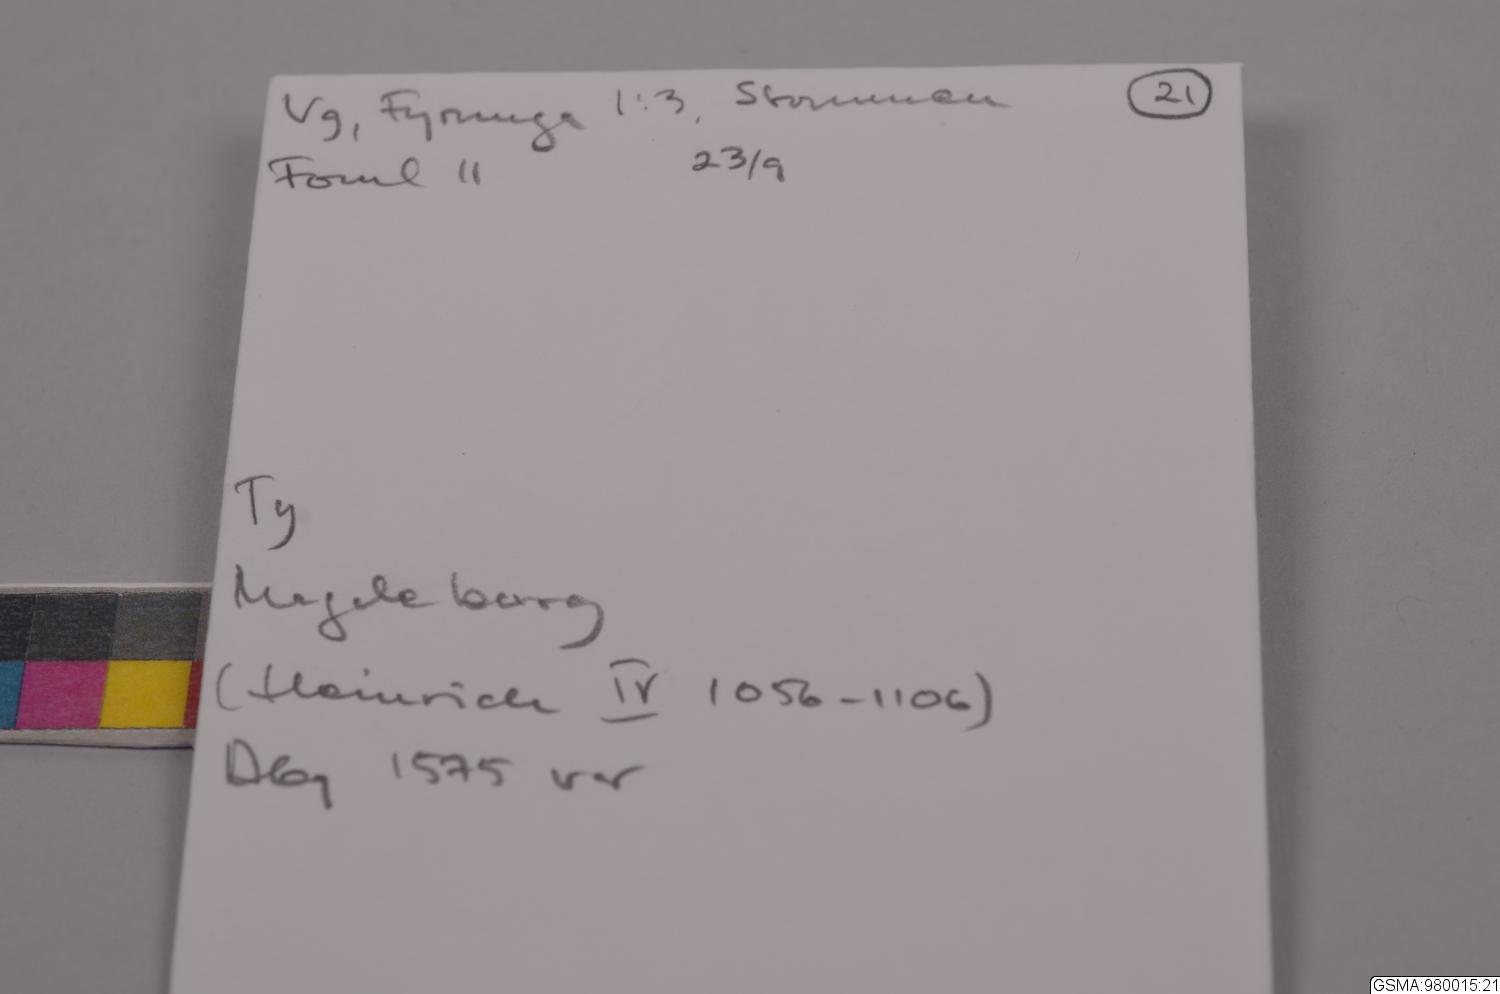 Vg, Fyrunga 1:3, Stommen 21
Fornl 11 23/9
Ty
Magdeburg
(Heinrich IV 1056-1106)
Dbg 1575 var
GSMA:980015:21